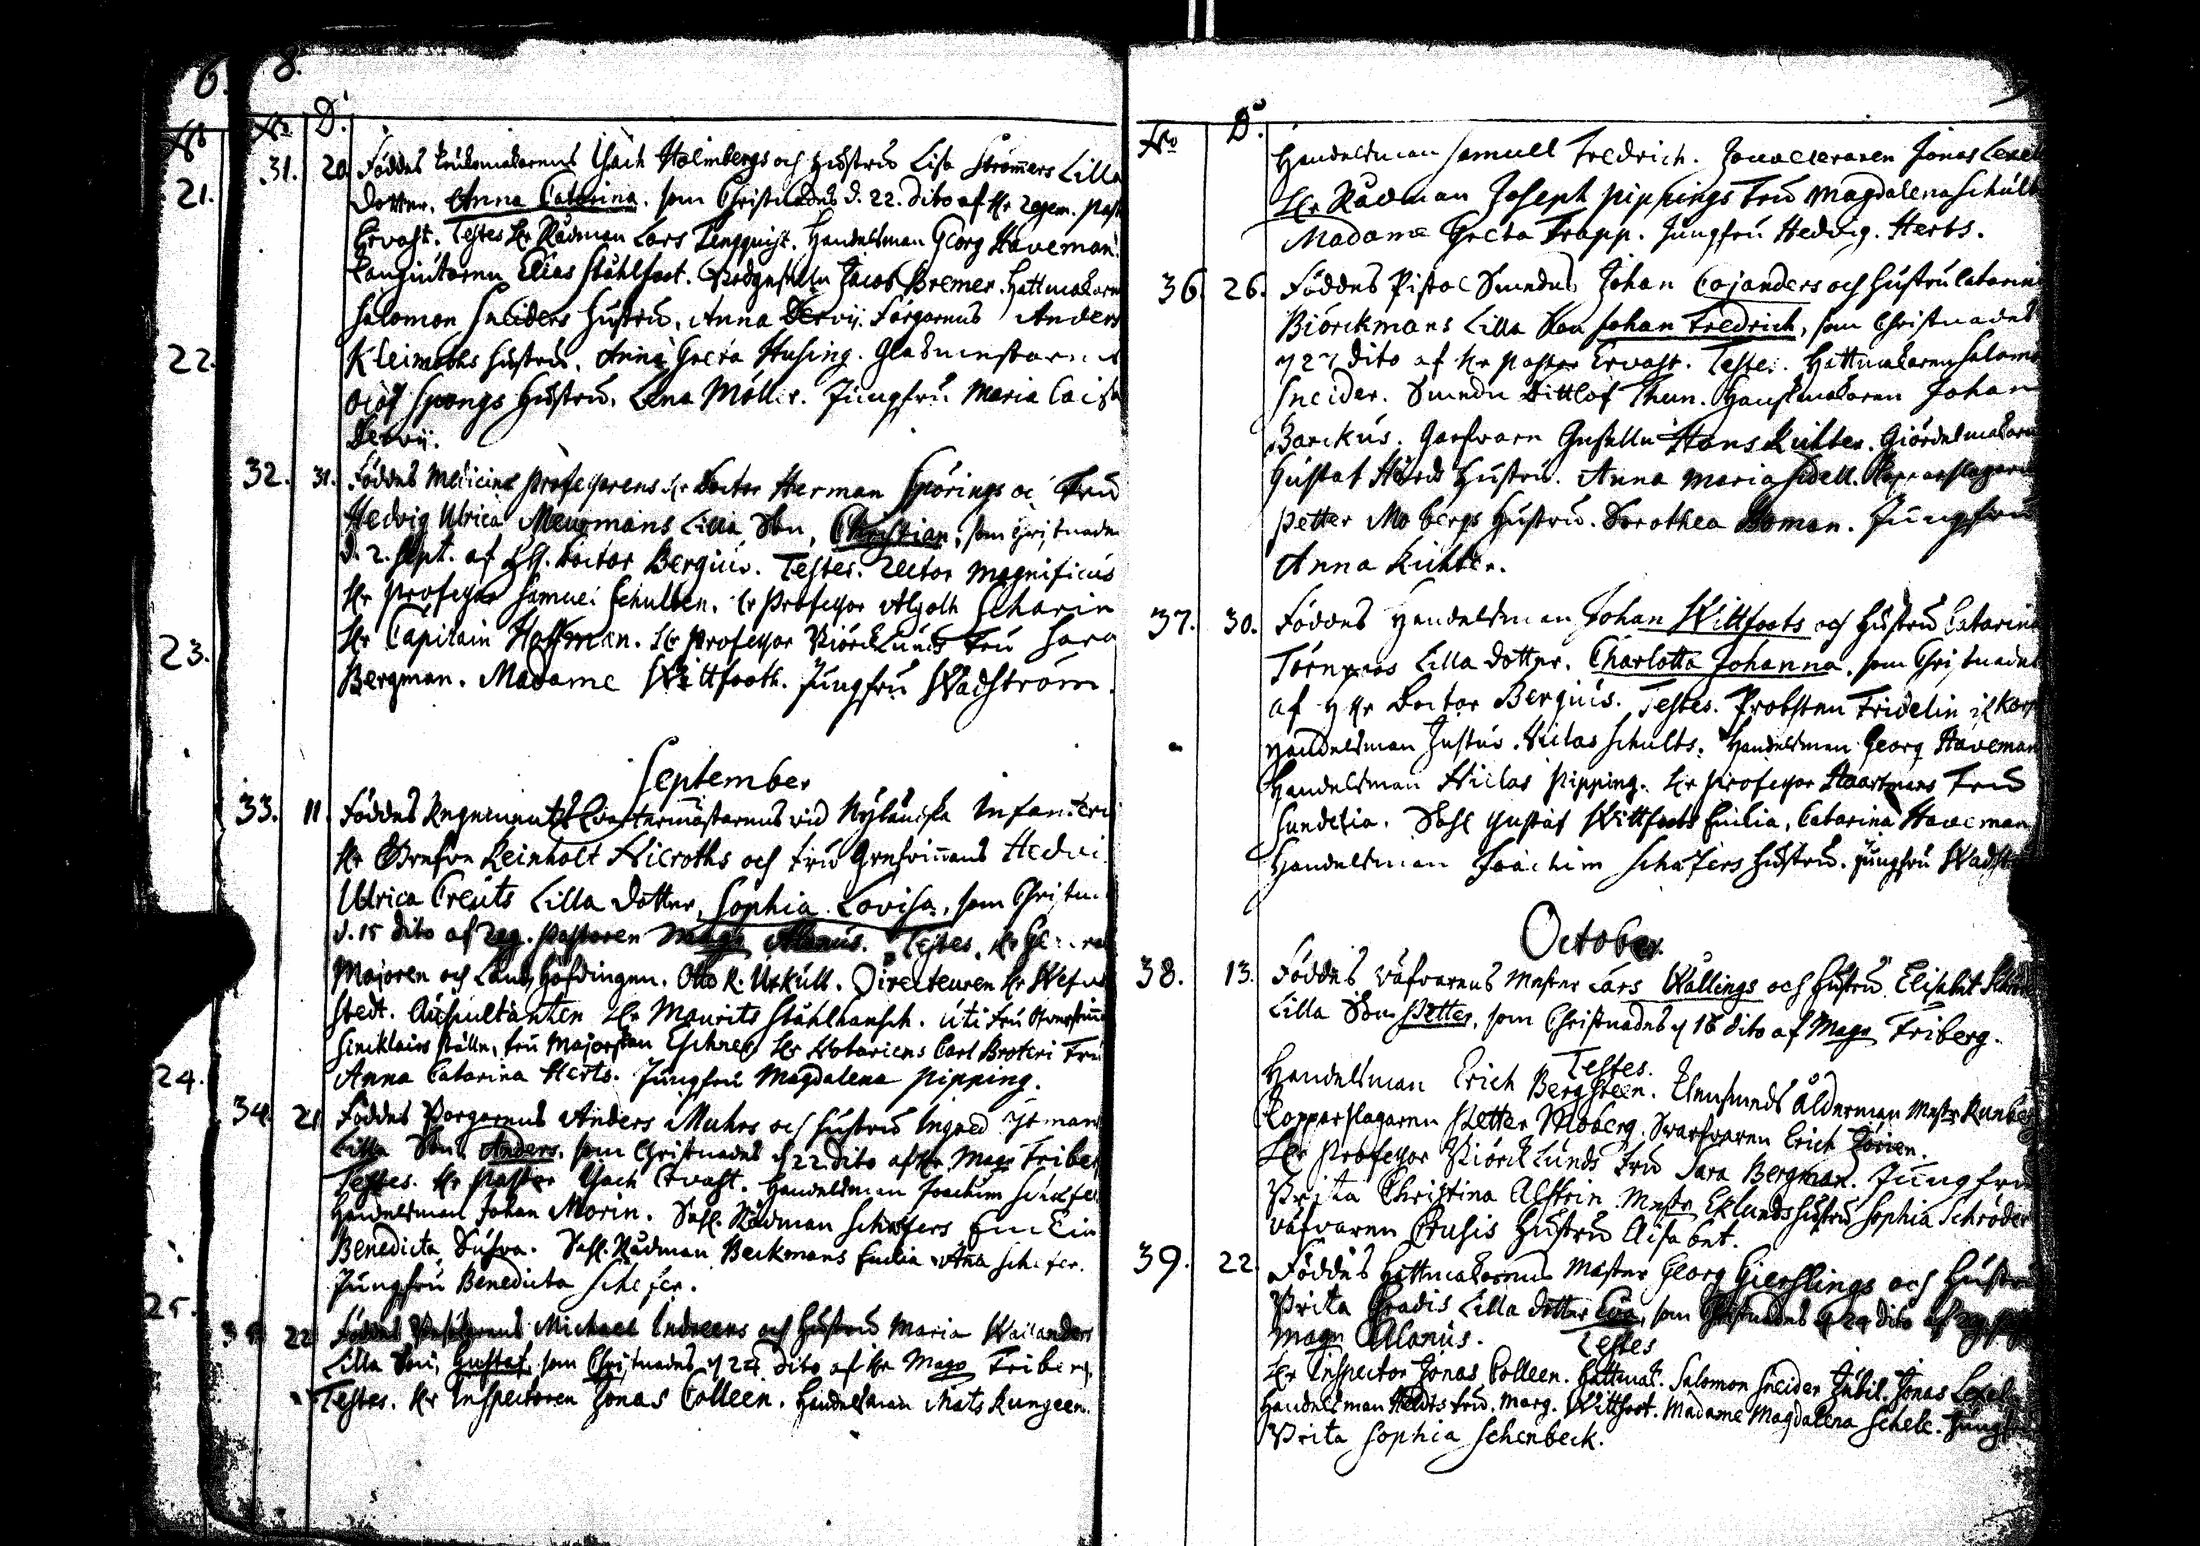 6.
No
21.
22.
23.
24.
25.
8.
No D.
31. 20. Föddes Krukomakarens Isach Holmbergs och Hustru Lisa Strömers Lilla
Dotter. Anna Catarina. som Christnades d. 22. dito af Hr Regem. past
Ervast. Testes Hr Rådman Lars Tengquist. Handelsman Georg Haveman.
Elias Stählfoot. Jacob Bremer. Hattmakaren
Salomon Sneiders Hustru. Anna Dervij. Färgarens Anders
Kleimolas Hustru. Anna Greta Husing. Glasmestarens
Olof Spongs Hustru. Lena Möller. Jungfru Maria Caisa
Dervij.
32. 31. Föddes Medicine Professorens Hr Doctor Herman Spörings och Fru
Hedvig Ulrica Meurmans Lilla Son, Christian, som Christnades
d. 2. Sept. af Hr. Doctor Bergius. Testes. Rector Magnificus
Hr Professor Samuel Schulten. Hr Professor Algoth Scharin
Hr Capitain Hoffman. Hr Professor Biörcklunds Fru Sara
Bergman. Madame Wittfooth. Jungfru Wadström.
September
33. 11. Föddes Regements Qvartermästarens vid Nyländska Infanteri
Hr Grefve Reinholt Nieroths och Fru Grefvinnans Hedvi
Ulrica Creuts Lilla Dotter, Sophia Lovisa, som Christn
d. 15 dito af Reg. Pastoren Mag. Alanus. Testes. Hr General
Majoren och Landz Höfdingen. Otto R. Urküll. Directeuren Hr Wefve
stedt. Auscultanten Hr Mourits Stählhansch. uti Fru
Sincklairs ställe, Fru Majorskan Eschner Hr Notariens Carl Broteri Fru
Anna Catarina Herts. Jungfru Magdalena Pipping.
34. 21. Föddes Borgarens Anders Muhrs och Hustru Ingred
Lilla Son. Anders. som Christnades d 22 dito af Hr. Mag. Friber
Testes. Hr Pastor Isach Ervast. Handelsman Joachim Schäfer
Handelsman Johan Morin. Sahl. Rådman Schäfers Enckia
Benedicta Suhra. Sahl. Rådman Beckmans Enckia Anna Schefer.
Jungfru Benedicta Schefer.
35. 22. Föddes Michael Indreens och Hustru Maria Wailanders
Lilla Son, Gustaf, som Christnades d 24 dito af Hr Mag. Friberg.
Testes. Hr Inspectoren Jonas Colleen. Handelsman Mats Rungeen.
No D.
Handelsman Samuell Fredrich. Jouveleraren Jonas Lexel
Hr Rådman Joseph Pippings Fru Magdalena Schult
Madame Greta Trapp. Jungfru Hedvig. Herts.
36. 26. Föddes Pistol Smedens Johan Cajanders och Hustru Catarina
Biörckmans Lilla Son Johan Fredrich, som Christnades
d 27 dito af Hr Pastor Ervast. Testes. Hattmakaren Salomon
Sneider. Smeden Dittlof Thun. Handskmakaren Johan
Barckus. Garfvare Gesällen Hans Richter. Giördelmakaren
Gustaf Hörds Hustru. Anna Maria Sidell. Kopparslagarens
Petter Mobergs Hustru. Dorothea Boman. Jungfru
Anna Richter.
37. 30. Föddes Handelsman Johan Wittfoots och Hustru Catarina
Törnroos Lilla Dotter. Charlotta Johanna. som Christnades
af Hr Doctor Bergius. Testes. Probsten Fridelin
Handelsman Justus Niclas Schults. Handelsman Georg Haveman
Handelsman Niclas Pipping. Hr Professor Haartmans Fru
Sundelia. Sahl Gustaf Wittfoots Enckia, Catarina Haveman
Handelsman Joachim Schäfers Hustru. Jungfru Wadst
October.
38. 13. Föddes Väfvarens Mester Lars Wallings och Hustru Elisabet
Lilla Son Petter, som Christnades d 16 dito af Mag. Friberg.
Testes.
Handelsman Erich Bergsteen. Ålderman Mester Runberg
Kopparslagaren Petter Moberg. Svarfvaren Erich
Hr Professor Biörcklunds Fru Sara Bergman. Jungfru
Brita Christina Alstrin. Mester Eklunds Hustru Sophia Schröder
Väfvaren Crusis Hustru Elisabet.
39. 22. Föddes Hattmakarens Mäster Georg Gierslings och Hustru
Brita Gradis Lilla Dotter Eva, som Christnades d 24 dito af Reg.
Mag. Alanus. Testes
Hr Inspector Jonas Colleen. Hattmak. Salomon Sneider Jubil. Jonas Lexel
Handelsman Heldts Fru. Marg. Wittfoot. Madame Magdalena Schele. Jungfru
Brita Sophia Schenbeck.